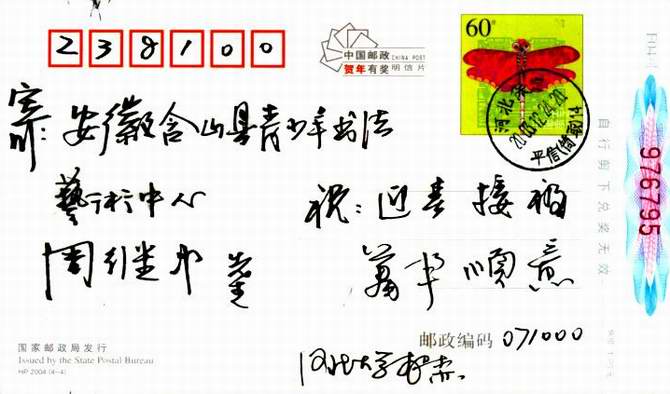 238100
中国邮政 CHINA POST
贺年有奖 明信片
60分
河北保
2003.12.24.20
平信(筒取)14
寄: 安徽含山县青少年书法
艺术中心
周继中 先生
祝: 迎春接福
万事顺意
976795
自行剪下兑奖无效
国家邮政局发行
Issued by the State Postal Bureau
HP 2004 (4-4)
邮政编码 071000
河北大学